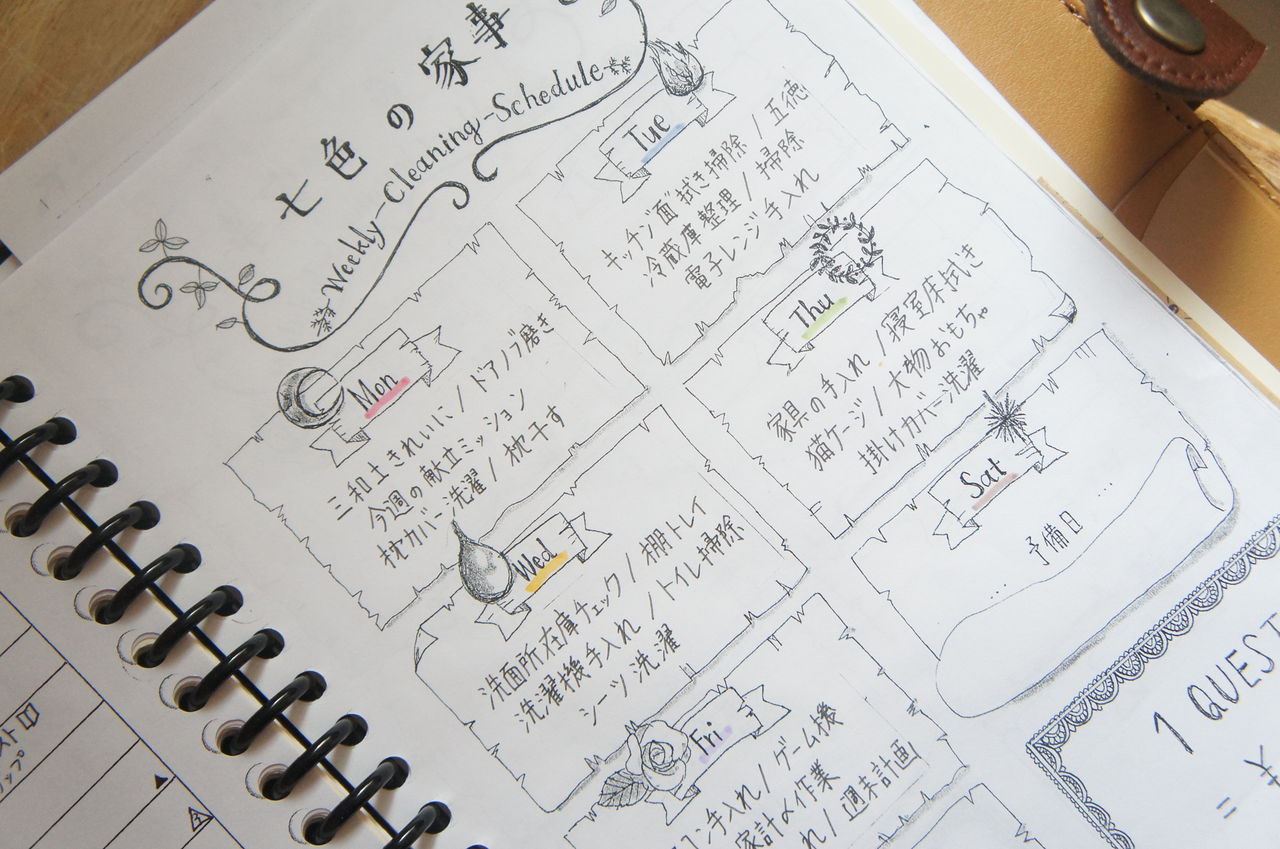 七色の家事
Weekly-Cleaning-Schedule
Mon
三和土きれいに / ドアノブ磨き
今週の献立ミッション
枕カバー洗濯 / 枕干す
Tue
キッチン面拭き掃除 / 五徳
冷蔵庫整理 / 掃除
電子レンジ手入れ
Wed
洗面所在庫チェック / 棚トレイ
洗濯機手入れ / トイレ掃除
シーツ洗濯
Thu
家具の手入れ / 寝室床拭き
猫ケージ / 大物おもちゃ
掛けカバー洗濯
Fri
コン手入れ / ゲーム機
家計〆作業
れ / 週末計画
Sat
予備日
1 QUEST